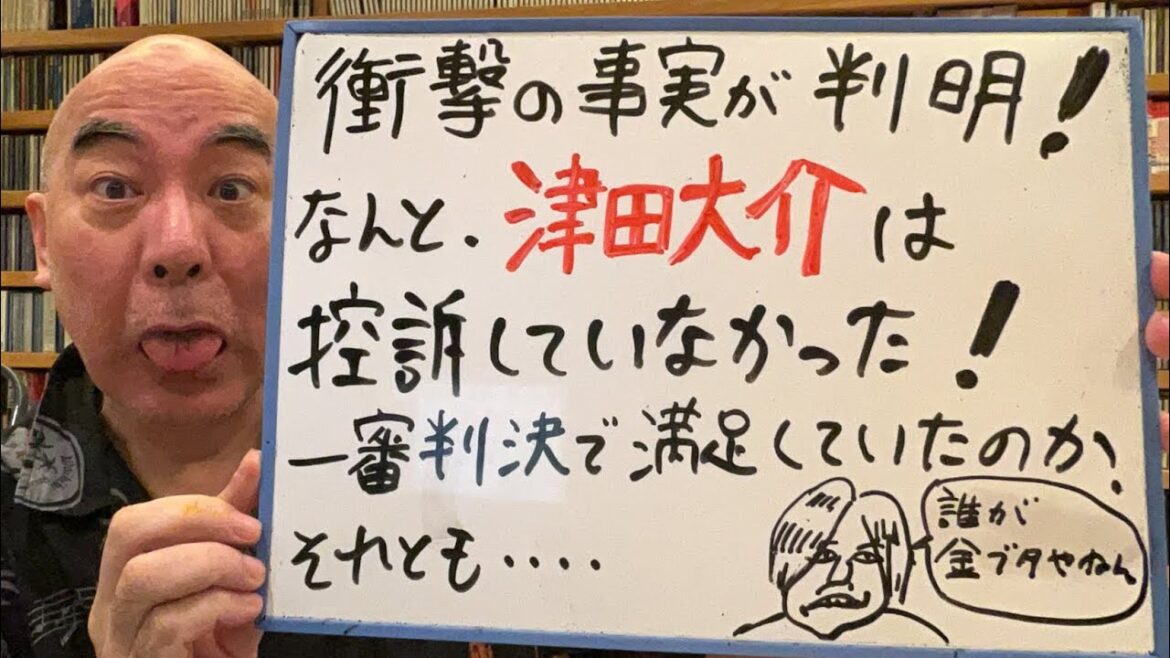 衝撃の事実が判明!
なんと、津田大介は
控訴していなかった!
一審判決で満足していたのか、
それとも・・・・
誰が
金ブタやねん